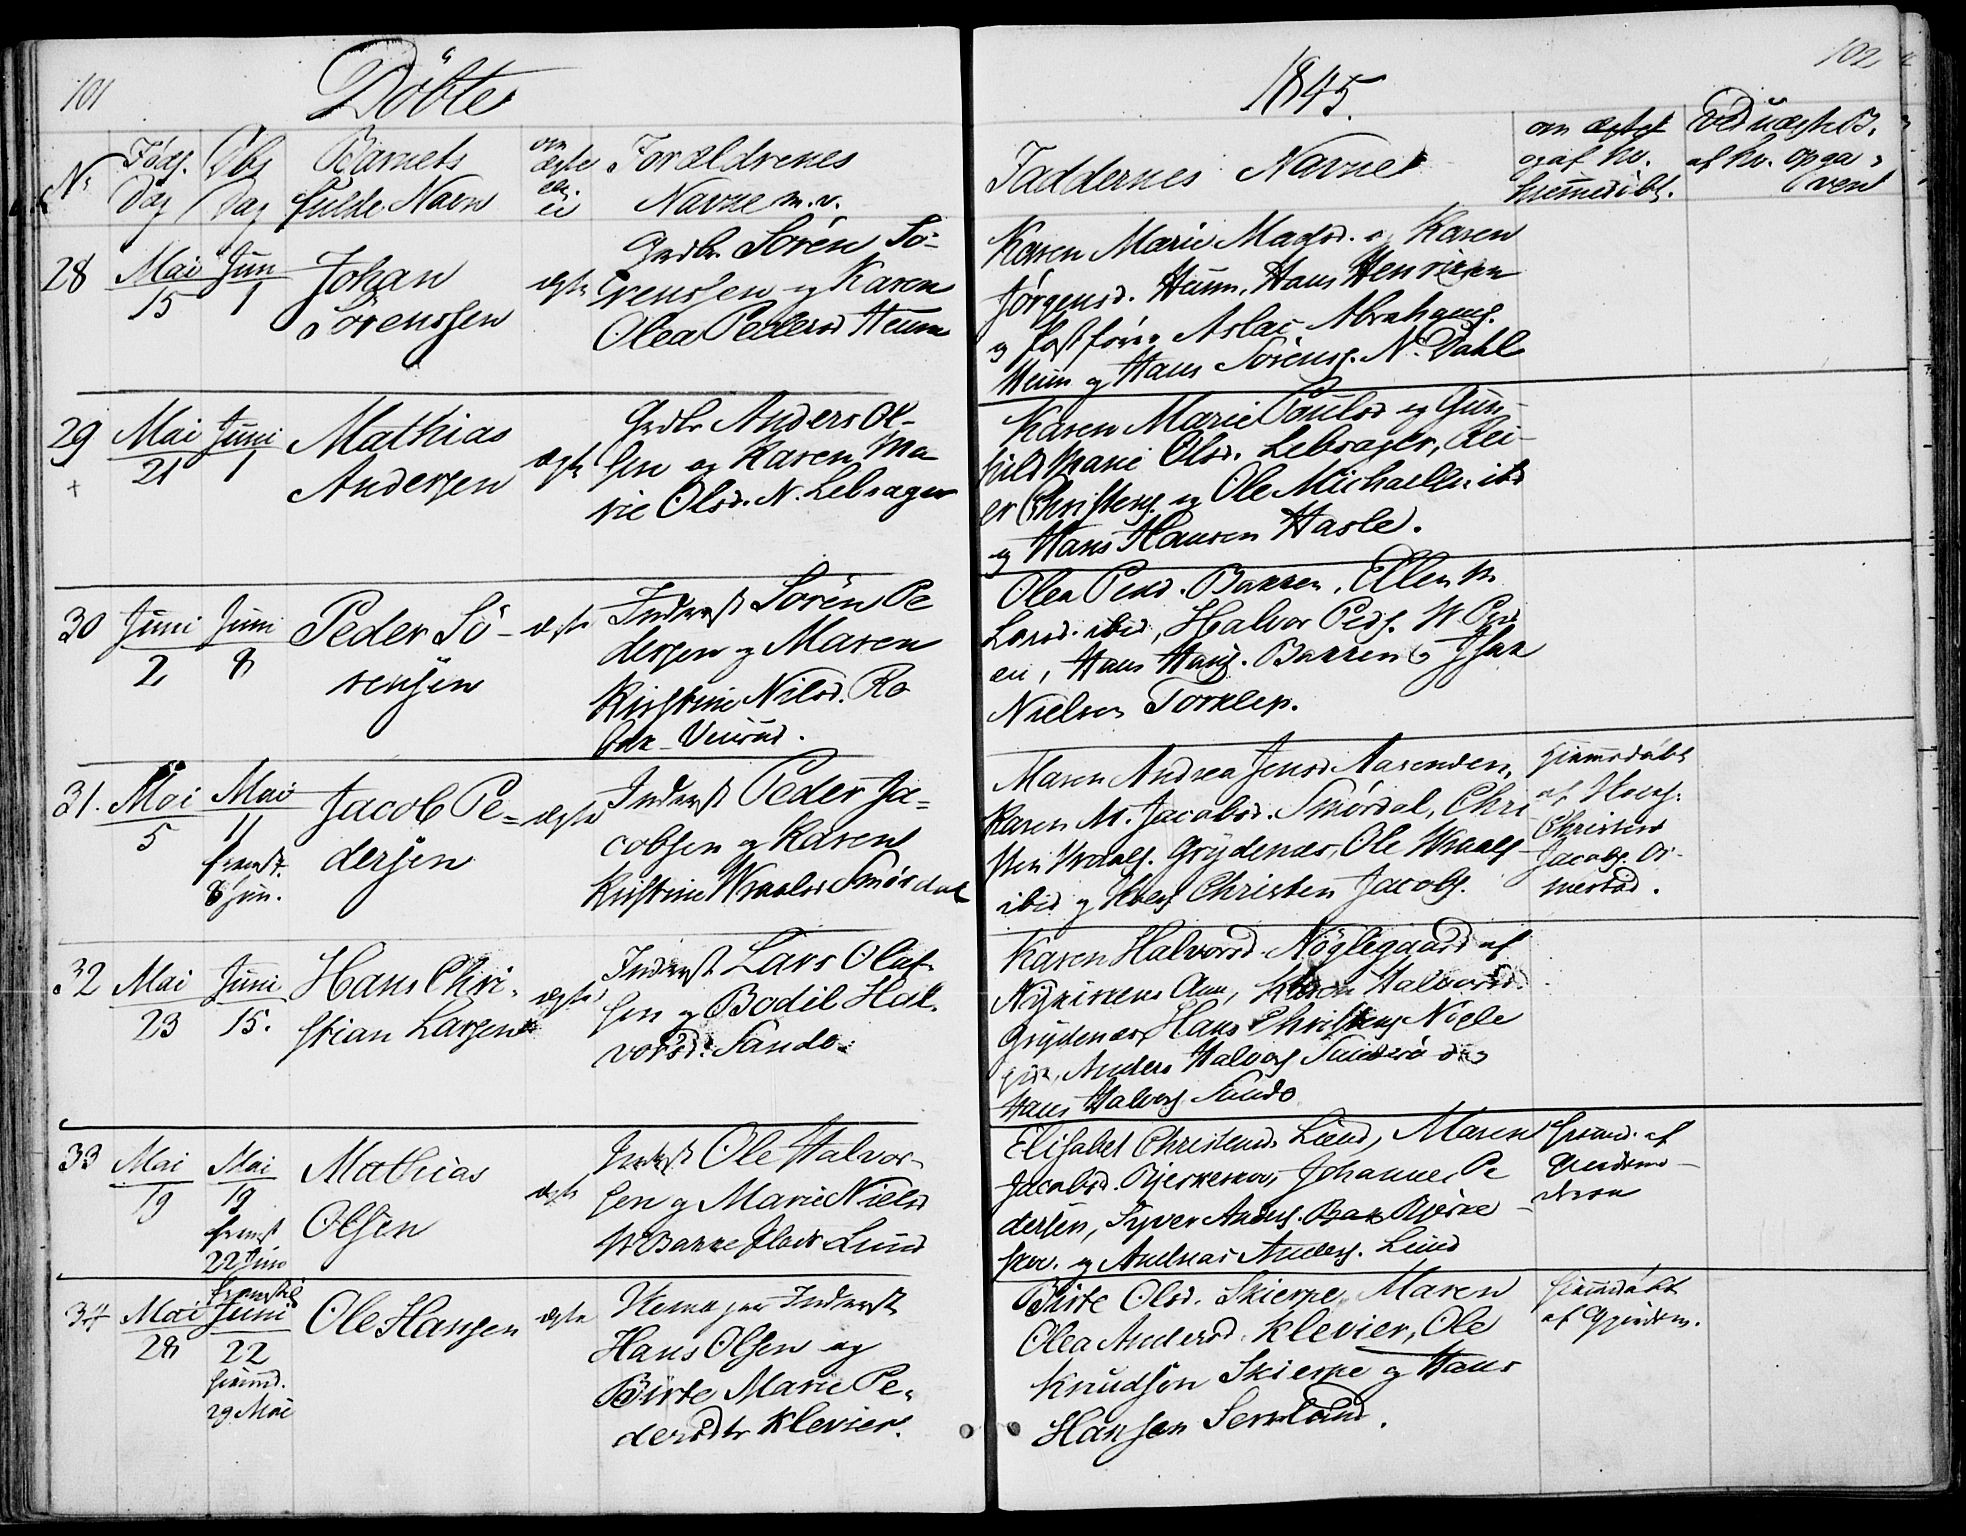 101
Döbte
1845.
102
Nr.
Föds. Dag
Dbs Dag
Barnets fulde Navn
om ægte ell. ei
Forældrenes Navne m.v.
Faddernes Navne
om ægte
og af hv. hiemmedöbt.
Ved uægte B. af hv. opgaven
28
Mai 15
Jun 1
Johan
Sörenssen
ægte
Grdbr. Sören Sö-
renssen og Karen
Olea Pedersd Heum
Karen Marie Madsd. og Karen
Jörgensd. Heum. Hans Henriksen
og Aslac Abrahams.
Heum og Hans Sörens. N. Dahl
29
Mai 21
Juni 1
Mathias
Andersen
ægte
Grdbr Anders Ol-
sen og Karen Ma-
rie Olsd. N. Lebsager
Karen Marie Poulsd og Gun-
hild Marie Olsd. Lebsager, Rei-
er Christens. og Ole Michaelsn ibd
og Hans Hansen Hasle.
30
Juni 2
Juni 8
Peder Sö-
rensen
ægte
Inderst Sören Pe
dersen og Maren
Kirstine Nilsd. Ro
Olea Pedsd. Bakken, Ellen M
Larsd. ibid, Halvor Peds.
en, Hans Hans. Bakken og Isak
Nielsen Torklep.
31.
Mai 5
Mai 11
fremst.
8 Jun.
Jacob Pe-
dersen
ægte
Inderst Peder Ja-
cobsen og Karen
Kirstine Smördal
Maren Andrea Jensd Aasenden,
Karen M. Jacobsd. Smördal, Chri
sten Grydenæs, Ole
ibid og Christen Jacobs.
Hiemmedöbt
af
Christen
Jacobs. Or-
mestad.
32
Mai 23
Juni 15.
Hans Chri-
stian Larsen
ægte
Inderst Lars Olaf-
sen og Bodil Hal-
vorsd. Sando.
Karen Halvorsd. Nöglegaard af
Nykirkens Ann, Karen Halvorsd.
Grydenæs, Hans Christens. Nögle
gd, Anders Halvors og
Hans Halvors. Sando
33
Mai 19
Mai 19
fremst
22 Juni
Mathias
Olsen
ægte
Inderst Ole Halvor-
sen og Marie Nielsd
Bakke Lund
Elisabet Christensd. Lund, Maren
Jacobsd. Bjerkeskov, Johanne Pe
dersen, Syver Anders. Bjerke-
skov. og Andreas Anders. Lund
hiemd. af
Gjordemo-
deren
34
Mai 28
fremstil
Juni 22
hiemd.
29 Mai
Ole Hansen
ægte
Inderst
Hans Olsen og
Birte Marie Pe-
dersdtr Klevier.
Birte Olsd. Skierpe, Maren
Olea Andersd. Klevier, Ole
Knudsen Skierpe og Hans
Hansen
hiemmdöbt
af Gjordem.